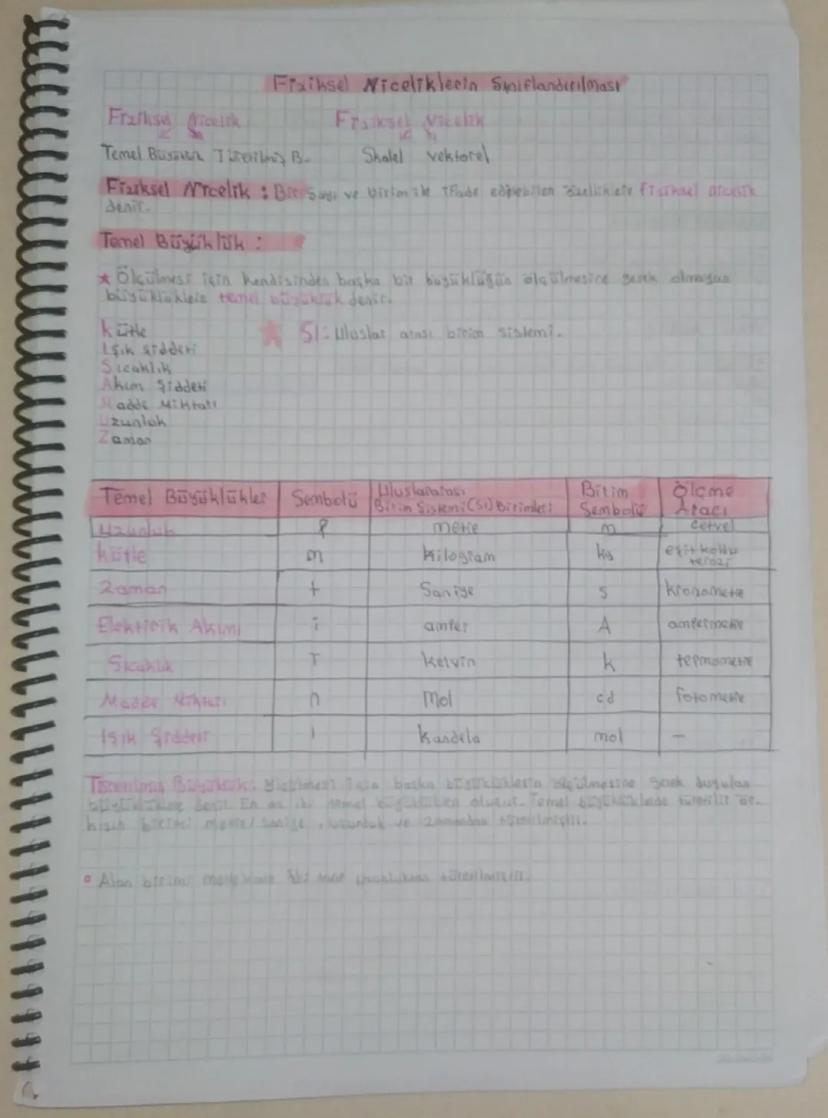 Fiziksel Niceliklerin Sınıflandırılması
Fiziksel Nicelik Fiziksel Nicelik
Temel Büyüklük Türetilmiş B. Skalel Vektörel
Fiziksel Nicelik : Bir sayı ve birim ile ifade edilebilen özelliklere fiziksel nicelik
denir.
Temel Büyüklük :
★ Ölçülmesi için kendisinden başka bir büyüklüğün ölçülmesine gerek olmayan
büyüklüklere temel büyüklük denir.
Kütle ★ SI: Uluslar arası birim sistemi.
Işık şiddeti
Sıcaklık
Akım şiddeti
Madde Miktarı
Uzunluk
Zaman
Temel Büyüklükler Sembolü Uluslararası Birim Sistemi (SI) Birimleri Birim Sembolü Ölçme Aracı
Uzunluk l metre m cetvel
Kütle m kilogram kg eşit kollu terazi
Zaman t Saniye s kronometre
Elektrik Akımı i amfer A amfermetre
Sıcaklık T kelvin k termometre
Madde Miktarı n Mol cd fotometre
Işık Şiddeti I kandela mol —
Türetilmiş Büyüklük: için başka büyüklüklerin ölçülmesine gerek duyulan
büyüklüklere denir. En az iki temel büyüklükten oluşur. Temel büyüklüklerde türetilir ör.
hızın birimi metre/saniye, uzunluk ve zamandan türetilmiştir.
▫ Alan birimi metrekare iki tane uzunluktan türetilmiştir.